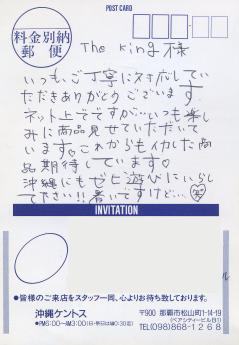 POST CARD
料金別納
郵便
The King 様
いつもご丁寧に対応してい
ただきありがとうございます
ネット上でですが…いつも楽し
みに商品見せていただいて
います。これからもイカした商
品期待しています♡
沖縄にもぜひ遊びにいらし
て下さい!!暑いですけど…笑
INVITATION
●皆様のご来店をスタッフ一同、心よりお待ち致しております。
沖縄ケントス
〒900 那覇市松山町1-14-19
(ペアシティービルB1)
●PM6:00〜AM3:00(日・祭日はAM0:30迄)
TEL(098)868-1268